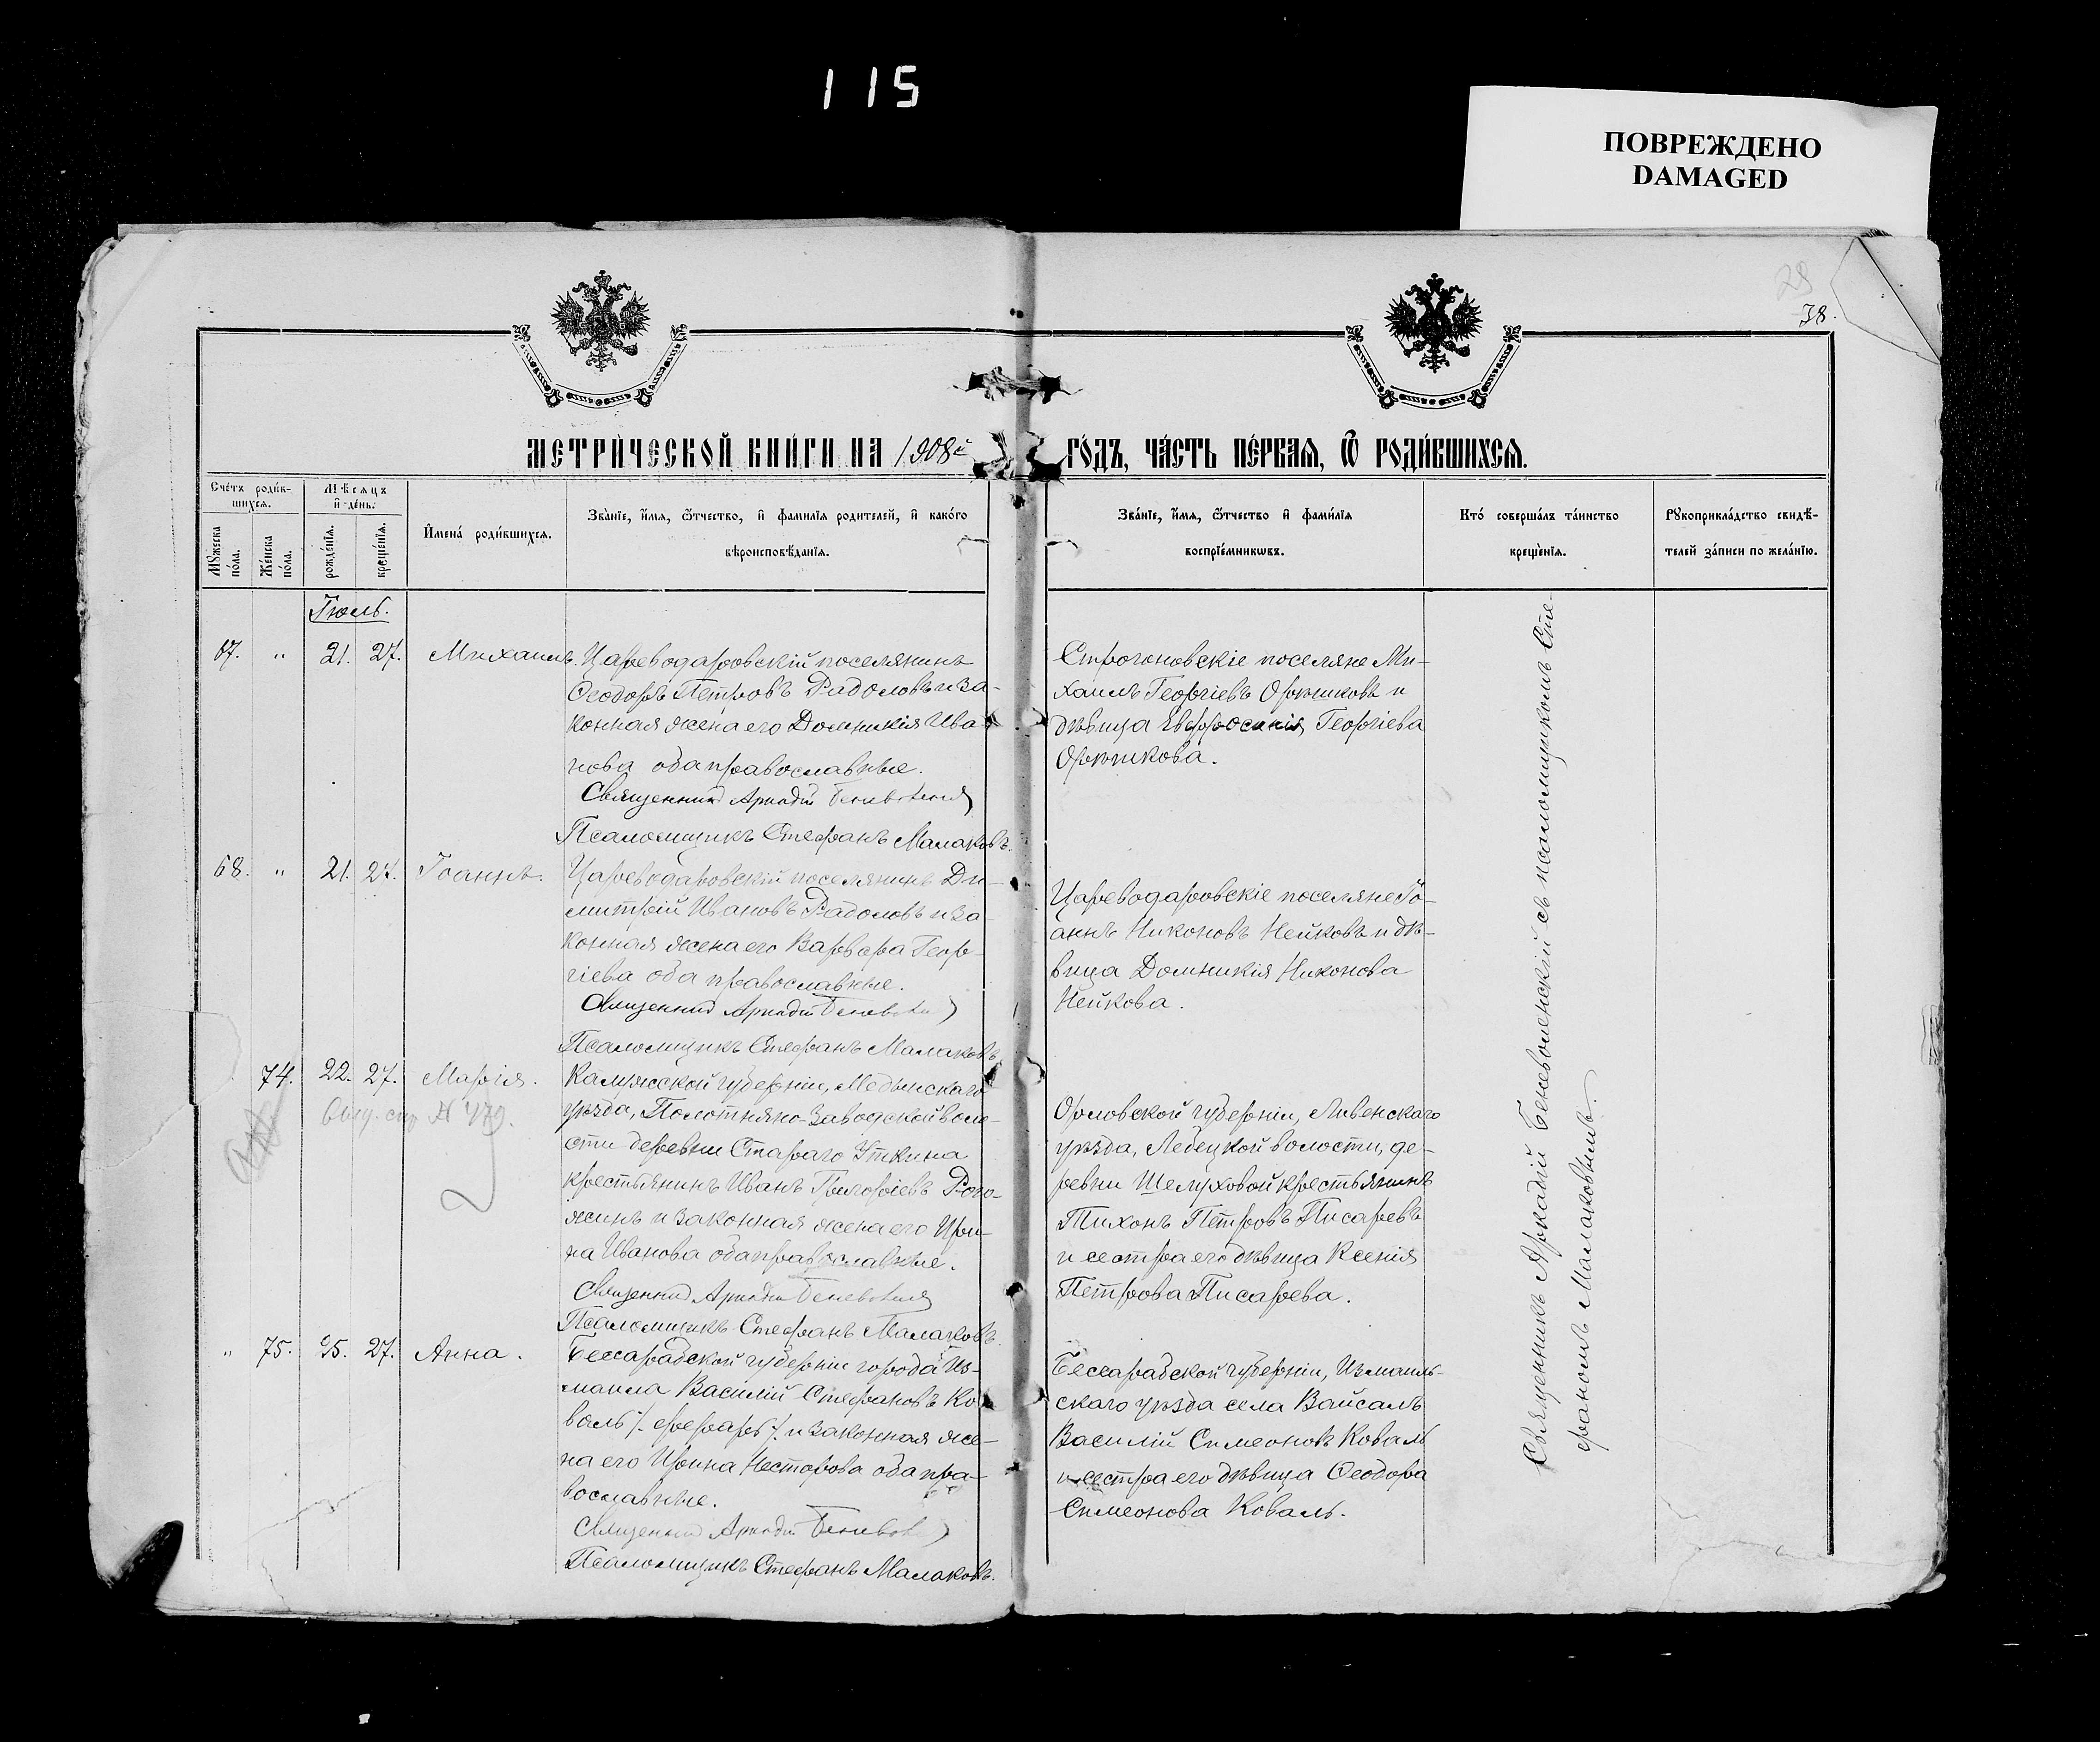 115
ПОВРЕЖДЕНО
DAMAGED
29
78.
МЕТРИ́ЧЕСКОЙ КНИ́ГИ НА 1908й ГО́ДЪ, ЧА́СТЬ ПЕ́РВАЯ, Ѿ РОДИ́ВШИХСЯ.
Сче́тъ роди́в-
шихся.
Мꙋ́жеска
по́ла.
Же́нска
по́ла.
Мѣ́сяцъ
и҆ де́нь.
рожде́нїя.
креще́нїя.
И҆мена̀ роди́вшихся.
Зва́нїе, и҆́мя, ѻ҆́тчество, и҆ фами́лїя роди́телей, и҆ како́го
вѣроисповѣ́данїя.
Зва́нїе, и҆́мя, ѻ҆́тчество и҆ фами́лїя
воспрїе́мникѡвъ.
Кто̀ соверша́лъ та́инство
креще́нїя.
Рꙋкоприкла́дство свидѣ́-
телей за́писи по жела́нїю.
Іюль.
67. " 21. 27. Михаилъ.
Цареводаровскій поселянинъ
Ѳеодоръ Петровъ Радоловъ и за-
конная жена его Домникія Ива-
нова оба православные.
Священникъ Аркадій Беневоленскій
Псаломщикъ Стефанъ Малаховъ.
Строгоновскіе поселяне Ми-
хаилъ Георгіевъ Орѣшковъ и
дѣвица Евфросинія Георгіева
Орѣшкова.
68. " 21. 27. Іоаннъ.
Цареводаровскій поселянинъ Ди-
митрій Ивановъ Радоловъ и за-
конная жена его Варвара Геор-
гіева оба православные.
Священникъ Аркадій Беневоленскій
Псаломщикъ Стефанъ Малаховъ
Цареводаровскіе поселяне Іо-
аннъ Никоновъ Нейковъ и дѣ-
вица Домникія Никонова
Нейкова.
74. 22. 27. Марія.
№ 479.
Калужской губерніи, Медынскаго
уѣзда, Полотняно-Заводской воло-
сти деревни Стараго Уткина
крестьянинъ Иванъ Григоріевъ Рого-
жинъ и законная жена его Ири-
на Иванова оба православные.
Священникъ Аркадій Беневоленскій
Псаломщикъ Стефанъ Малаховъ.
Орловской губерніи, Ливенскаго
уѣзда, Лебецкой волости, де-
ревни Шелуховой крестьянинъ
Тихонъ Петровъ Писаревъ
и сестра его дѣвица Ксенія
Петрова Писарева.
" 75. 25. 27. Анна.
Бессарабской губерніи города Из-
маила Василій Стефановъ Ко-
валь /. фефаръ /. и законная же-
на его Ирина Несторова оба пра-
вославные.
Священникъ Аркадій Беневоленскій
Псаломщикъ Стефанъ Малаховъ.
Бессарабской губерніи, Измаиль-
скаго уѣзда села Вайсалъ
Василій Симеоновъ Коваль
и сестра его дѣвица Ѳеодора
Симеонова Коваль.
Священникъ Аркадій Беневоленскій съ псаломщикомъ Сте-
фаномъ Малаховымъ.